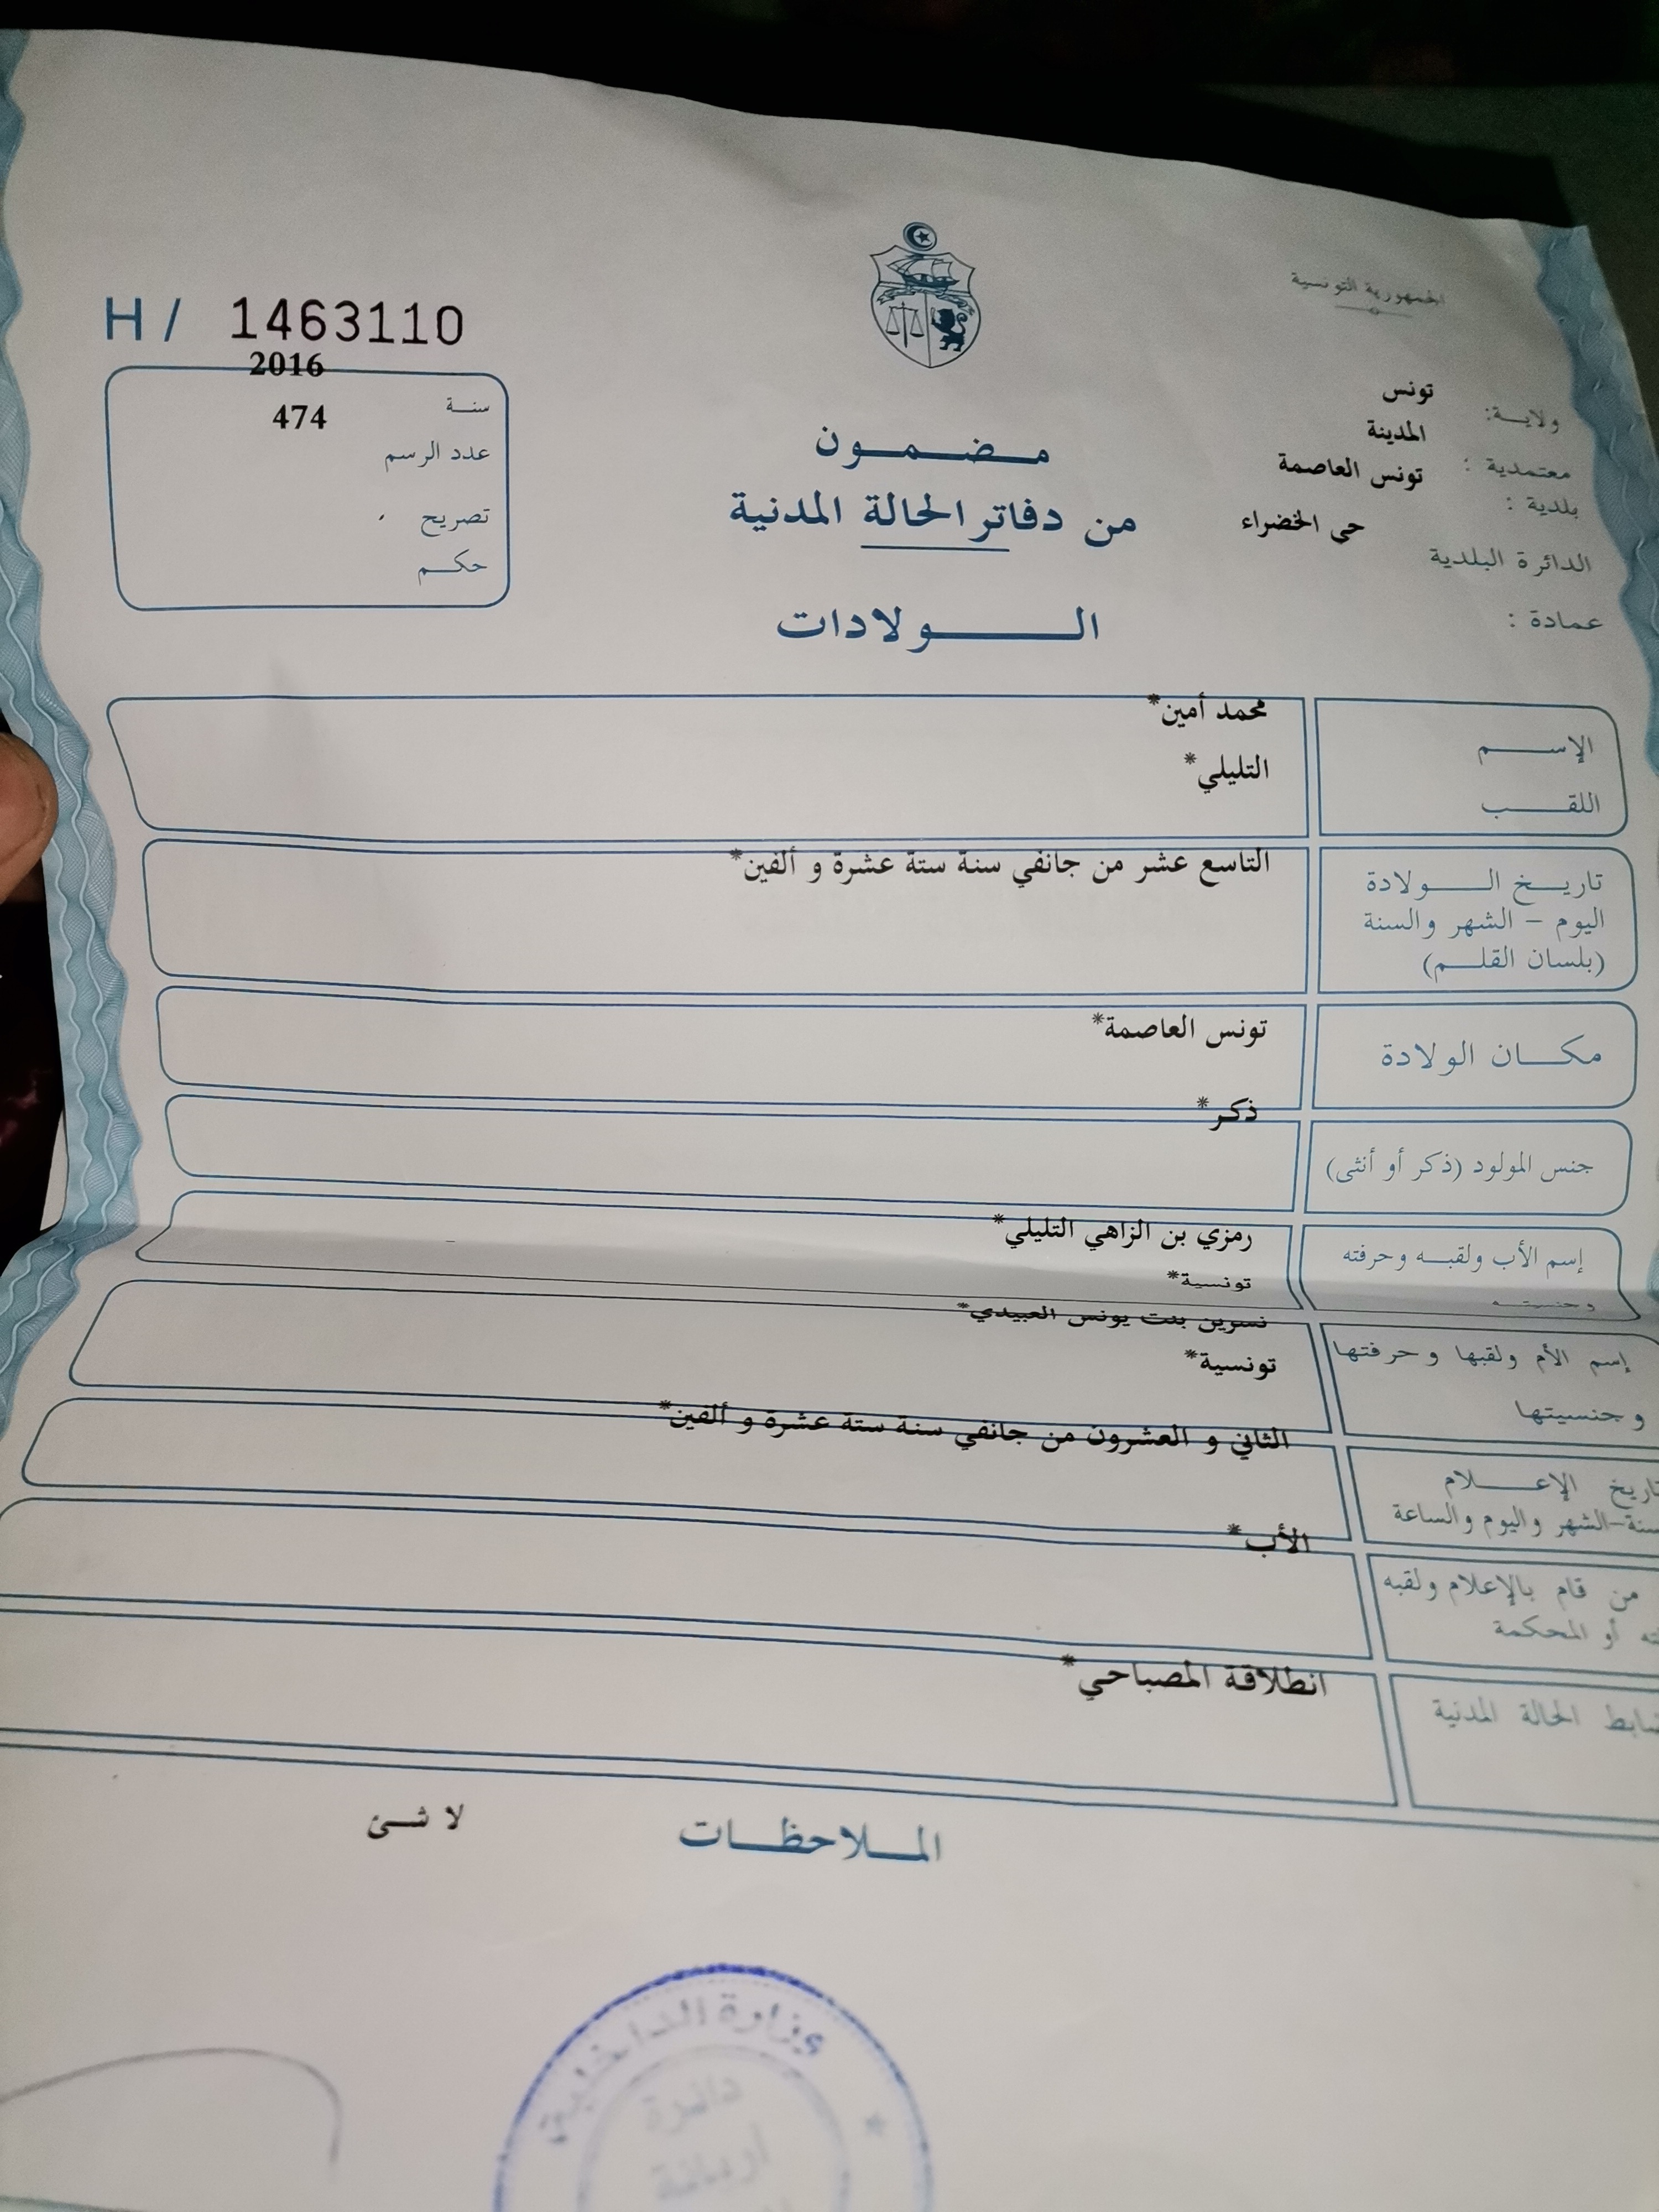 الجمهورية التونسية
H/ 1463110
ولاية: تونس
معتمدية : المدينة
بلدية : تونس العاصمة
الدائرة البلدية حى الخضراء
عمادة :
سنة 2016
عدد الرسم 474
تصريح
حكم
مضمون
من دفاتر الحالة المدنية
الولادات
الإسم محمد أمين*
اللقب التليلي*
تاريخ الولادة التاسع عشر من جانفي سنة ستة عشرة و ألفين*
اليوم – الشهر والسنة
(بلسان القلم)
مكان الولادة تونس العاصمة*
جنس المولود (ذكر أو أنثى) ذكر*
إسم الأب ولقبه وحرفته رمزي بن الزاهي التليلي*
وجنسيته تونسية*
إسم الأم ولقبها وحرفتها نسرين بنت يونس العبيدي*
وجنسيتها تونسية*
تاريخ الإعلام الثاني و العشرون من جانفي سنة ستة عشرة و ألفين*
سنة-الشهر واليوم والساعة
من قام بالإعلام ولقبه الأب*
أو المحكمة
ضابط الحالة المدنية انطلاقة المصباحي*
الملاحظات لا شئ
وزارة الداخلية
دائرة
أريانة